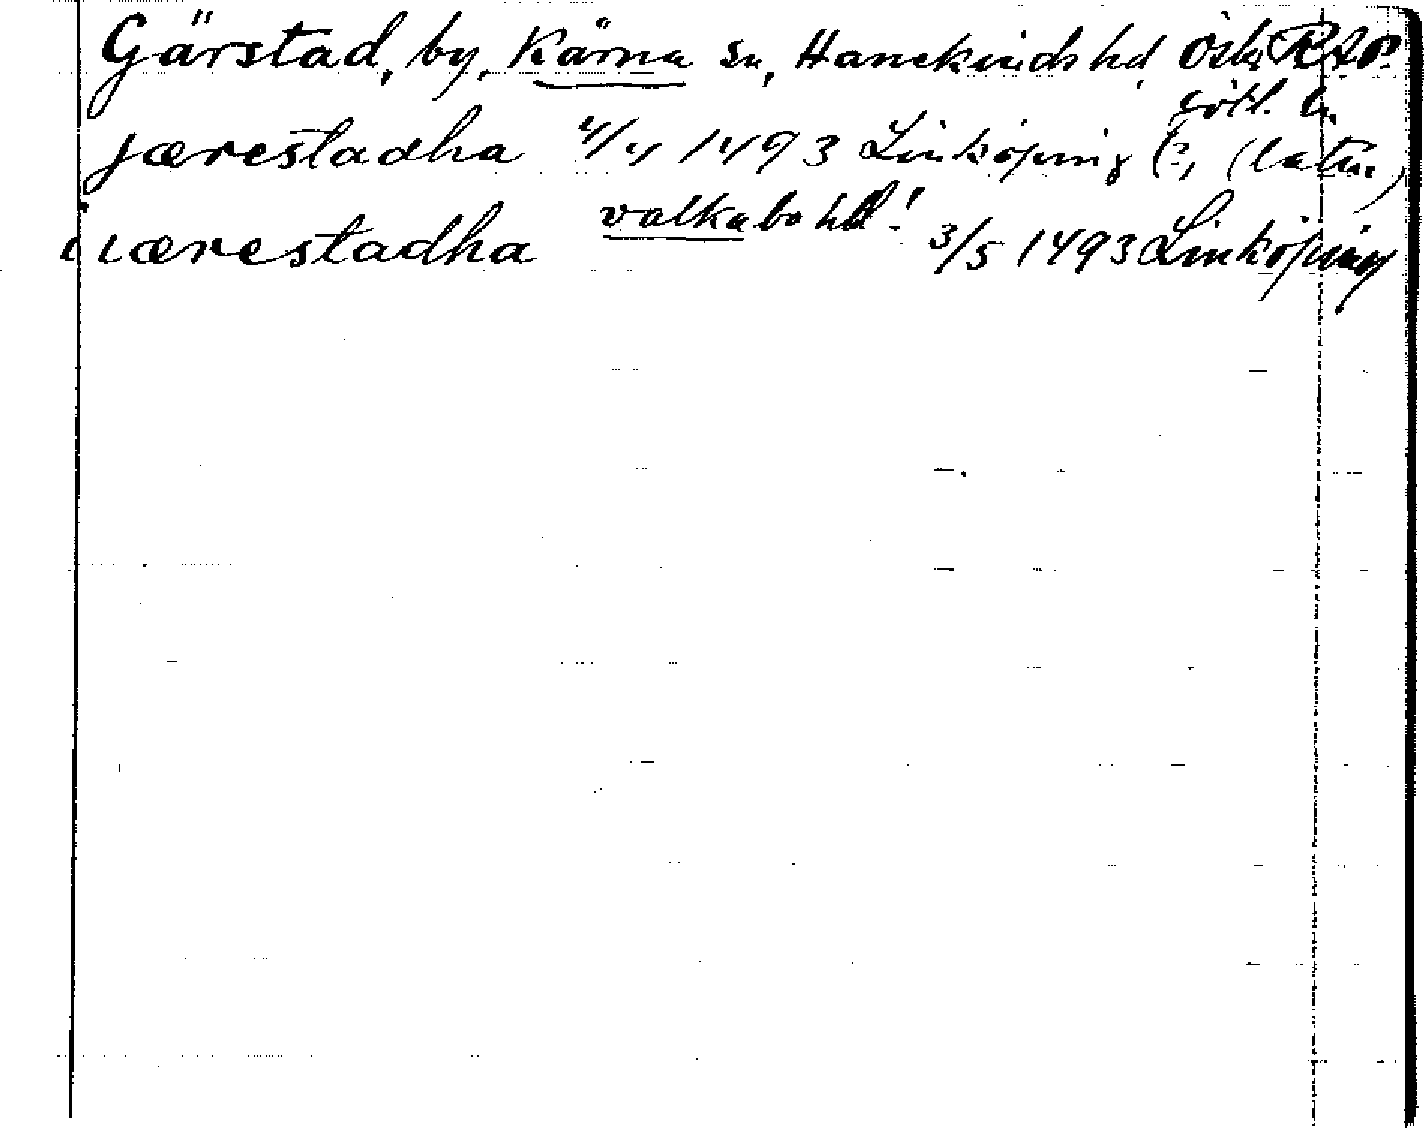 Gärstad, by, Kärna sn, Hanekinds hd Östergötl. L. RAP.
jærestadha 4/4 1493 Linköping (latin)
iærestadha valkabo hd! 3/5 1493 Linköping